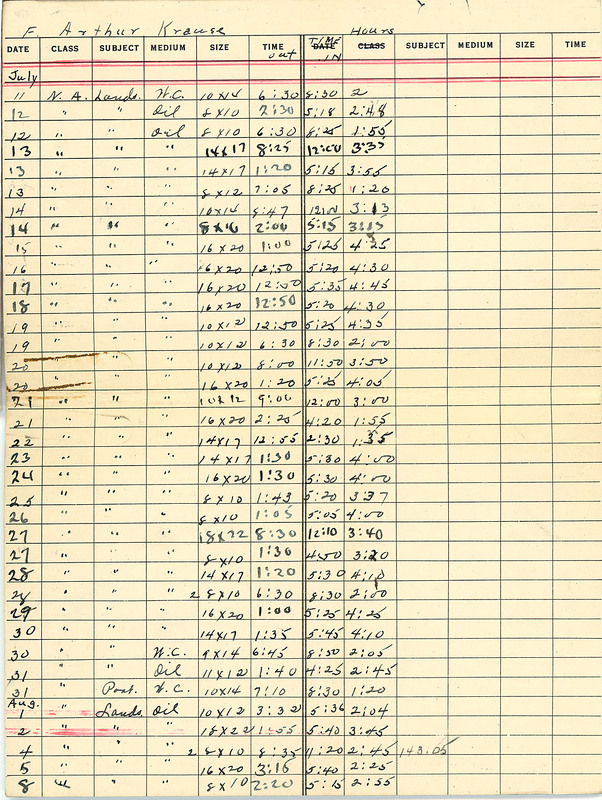 F. Arthur Krause Hours
DATE CLASS SUBJECT MEDIUM SIZE TIME out DATE TIME IN CLASS SUBJECT MEDIUM SIZE TIME
July
11 N. A. Lands. W.C. 10x14 6:30 8:30 2
12 " " Oil 8x10 2:30 5:18 2:48
12 " " Oil 8x10 6:30 8:25 1:55
13 " " " 14x17 8:25 12:00 3:35
13 " " " 14x17 1:20 5:15 3:55
13 " " " 8x12 7:05 8:25 1:20
14 " " " 10x14 8:47 12IN 3:13
14 " " " 2:00 5:15 3:15
15 " " " 16x20 1:00 5:25 4:25
16 " " " 16x20 12:50 5:20 4:30
17 " " " 16x20 12:50 5:35 4:45
18 " " " 16x20 12:50 5:20 4:30
19 " " " 10x12 12:50 5:25 4:35
19 " " " 10x12 6:30 8:30 2:00
20 " " 10x12 8:00 11:50 3:50
20 " " " 16x20 1:20 5:25 4:05
21 " " " 10x12 9:00 12:00 3:00
21 " " " 16x20 2:25 4:20 1:55
22 " " " 14x17 12:55 2:30 1:35
23 " " " 14x17 1:30 5:30 4:00
24 " " " 16x20 1:30 5:30 4:00
25 " " " 8x10 1:43 5:20 3:37
26 " " " 8x10 1:05 5:05 4:00
27 " " " 18x22 8:30 12:10 3:40
27 " " " 8x10 1:30 4:50 3:20
28 " " " 14x17 1:20 5:30 4:10
28 " " " 2 8x10 6:30 8:30 2:00
29 " " " 16x20 1:00 5:25 4:25
30 " " " 14x17 1:35 5:45 4:10
30 " " W.C. 9x14 6:45 8:50 2:05
31 " " Oil 11x12 1:40 4:25 2:45
31 " Port. W.C. 10x14 7:10 8:30 1:20
Aug.
1 " Lands. Oil 10x12 3:32 5:36 2:04
2 " " " 18x22 1:55 5:40 3:45
4 " " " 2 8x10 8:35 11:20 2:45 143.05
5 " " " 16x20 3:15 5:40 2:25
8 " " " 8x10 2:20 5:15 2:55